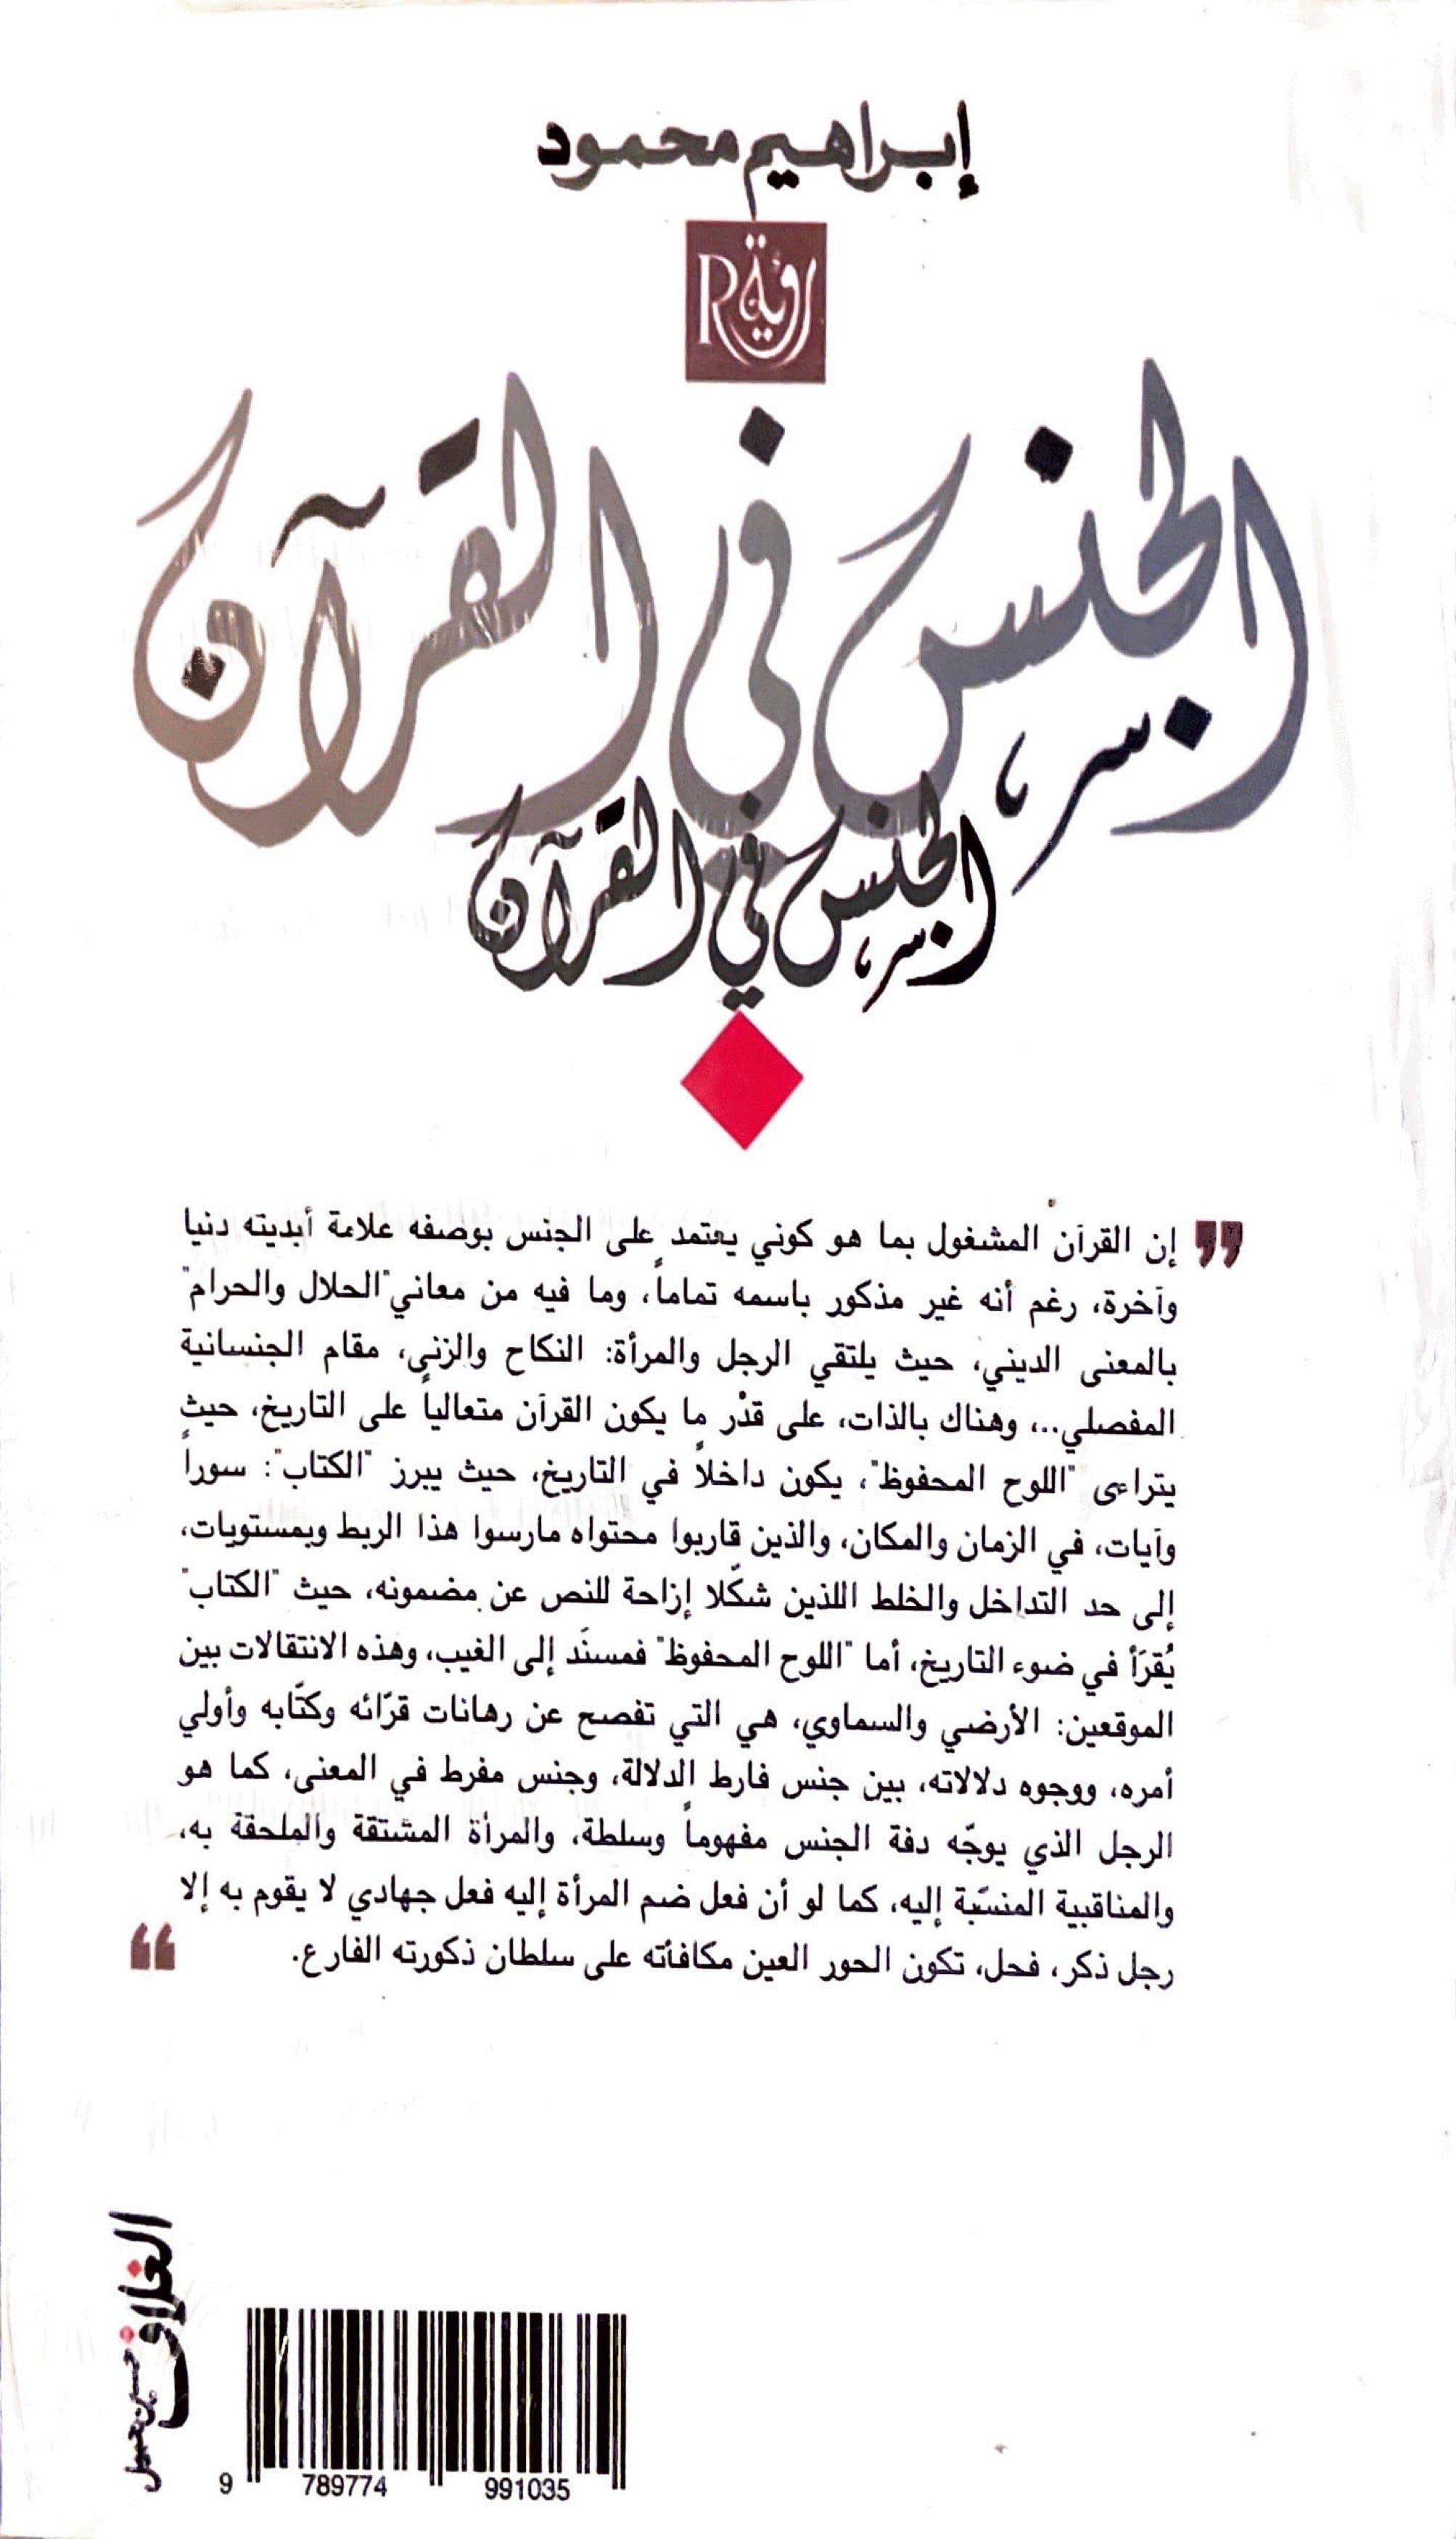 إبراهيم محمود
رؤية
R
الجنس في القرآن
الجنس في القرآن
إن القرآن المشغول بما هو كوني يعتمد على الجنس بوصفه علامة أبديته دنيا
وآخرة، رغم أنه غير مذكور باسمه تماماً، وما فيه من معاني"الحلال والحرام"
بالمعنى الديني، حيث يلتقي الرجل والمرأة: النكاح والزنى، مقام الجنسانية
المفصلي..، وهناك بالذات، على قدْر ما يكون القرآن متعالياً على التاريخ، حيث
يتراءى "اللوح المحفوظ"، يكون داخلاً في التاريخ، حيث يبرز "الكتاب": سوراً
وآيات، في الزمان والمكان، والذين قاربوا محتواه مارسوا هذا الربط وبمستويات،
إلى حد التداخل والخلط اللذين شكّلا إزاحة للنص عن مضمونه، حيث "الكتاب"
يُقرَأ في ضوء التاريخ، أما "اللوح المحفوظ" فمسنَد إلى الغيب، وهذه الانتقالات بين
الموقعين: الأرضي والسماوي، هي التي تفصح عن رهانات قرّائه وكتّابه وأولي
أمره، ووجوه دلالاته، بين جنس فارط الدلالة، وجنس مفرط في المعنى، كما هو
الرجل الذي يوجّه دفة الجنس مفهوماً وسلطة، والمرأة المشتقة والملحقة به،
والمناقبية المنسّبة إليه، كما لو أن فعل ضم المرأة إليه فعل جهادي لا يقوم به إلا
رجل ذكر، فحل، تكون الحور العين مكافأته على سلطان ذكورته الفارع.
الغلاف
حسين جبيل
9 789774 991035